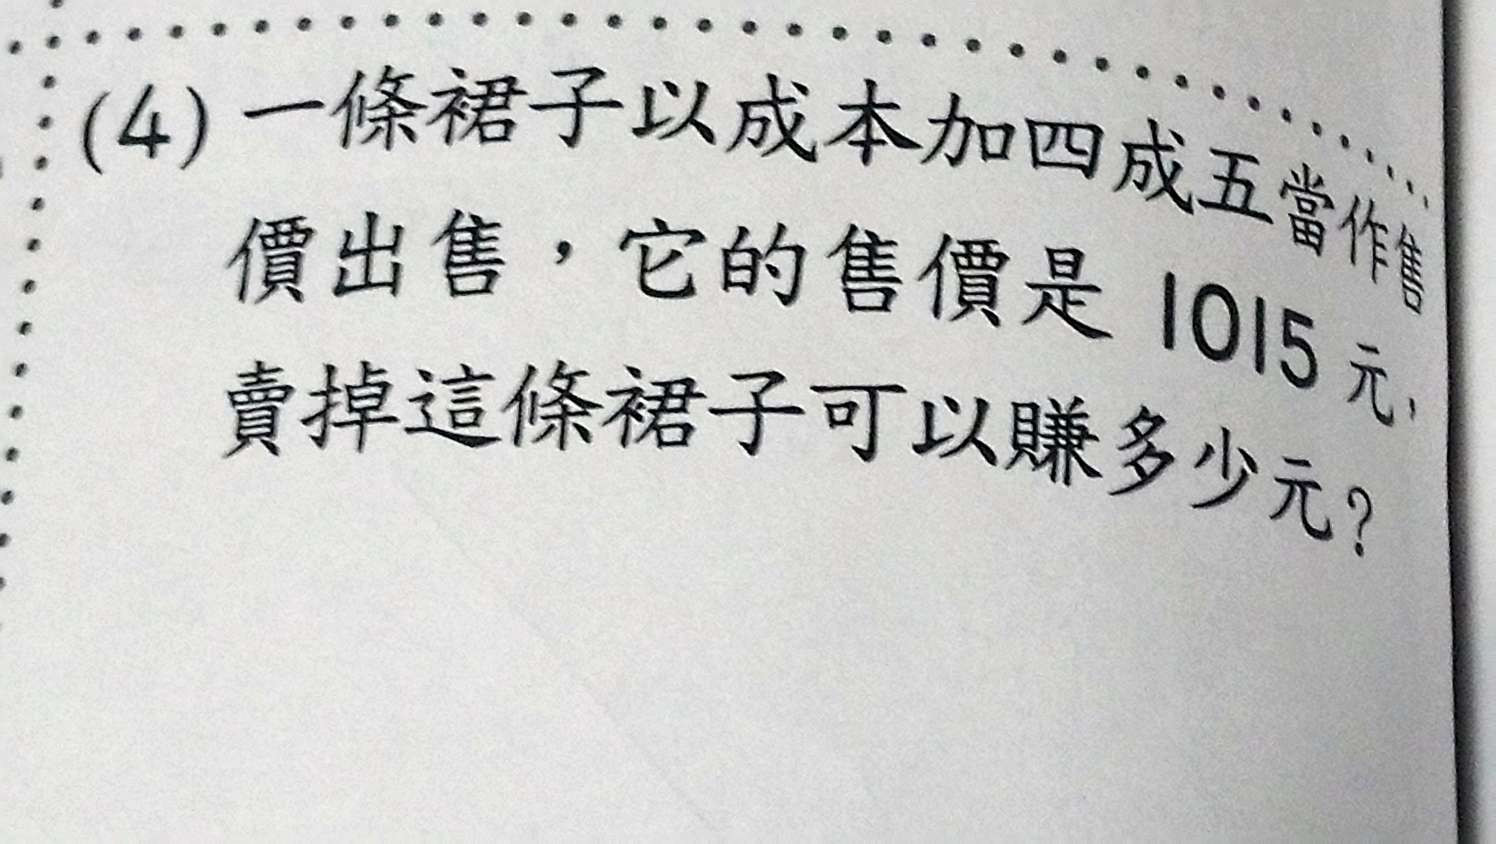 (4) 一條裙子以成本加四成五當作售
價出售，它的售價是 1015 元，
賣掉這條裙子可以賺多少元？